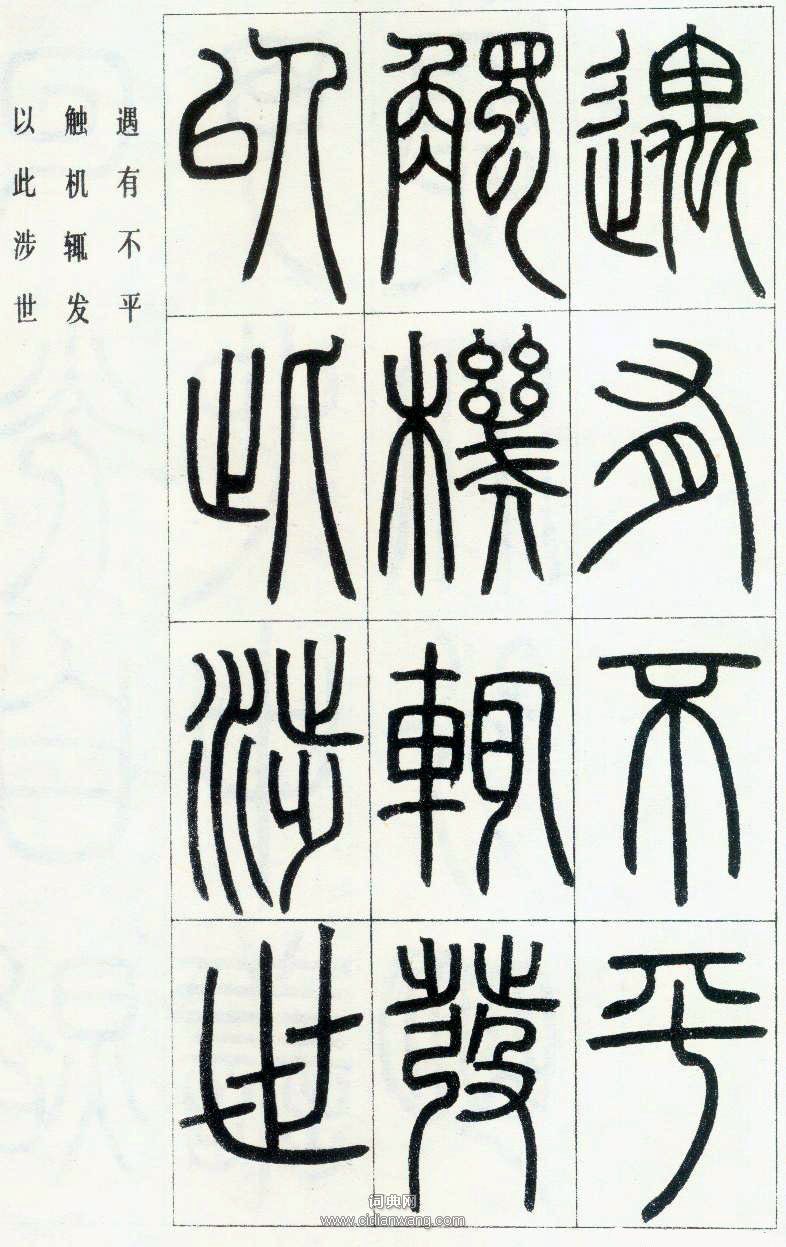 遇有不平
觸機輒發
以此涉世
遇有不平
触机辄发
以此涉世
词典网
www.cidianwang.com